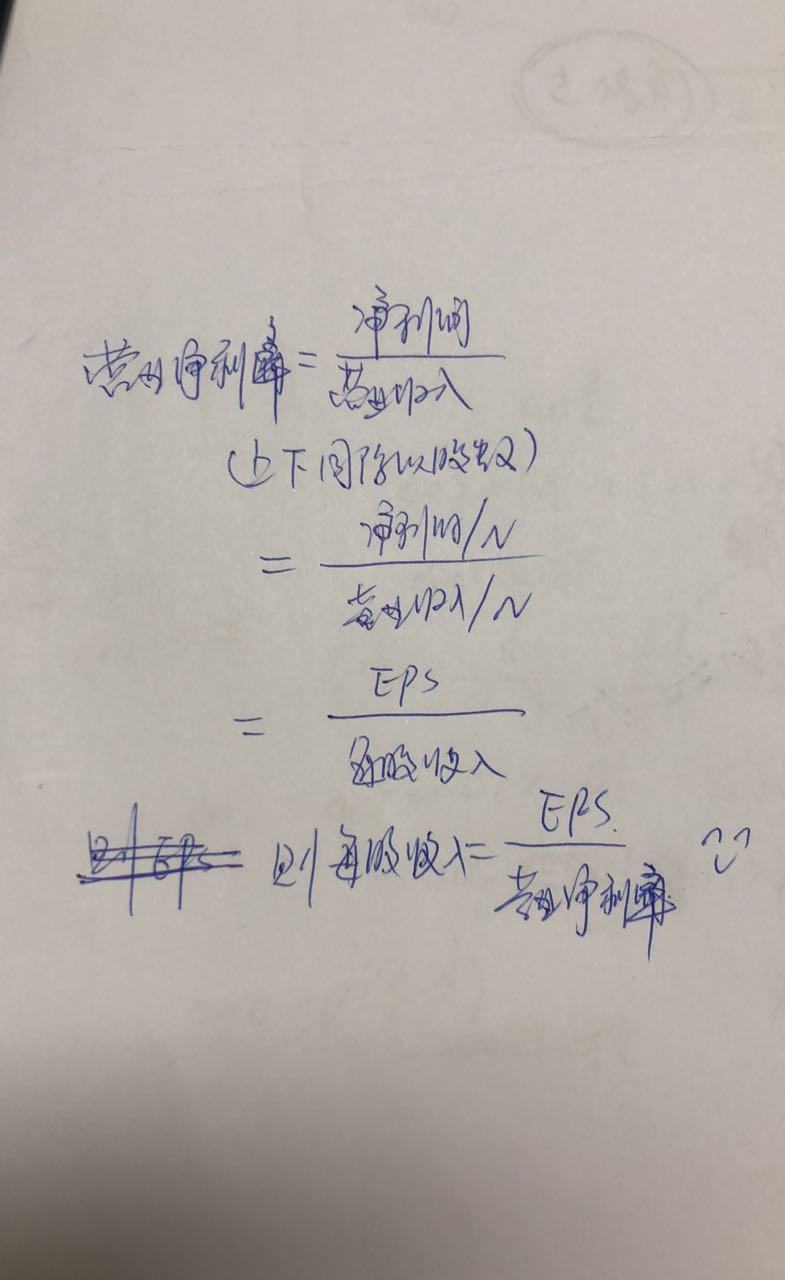 营业净利率=净利润/营业收入
(上下同除以股数)
=净利润/N/营业收入/N
=EPS/每股收入
则EPS 则每股收入=EPS/营业净利率